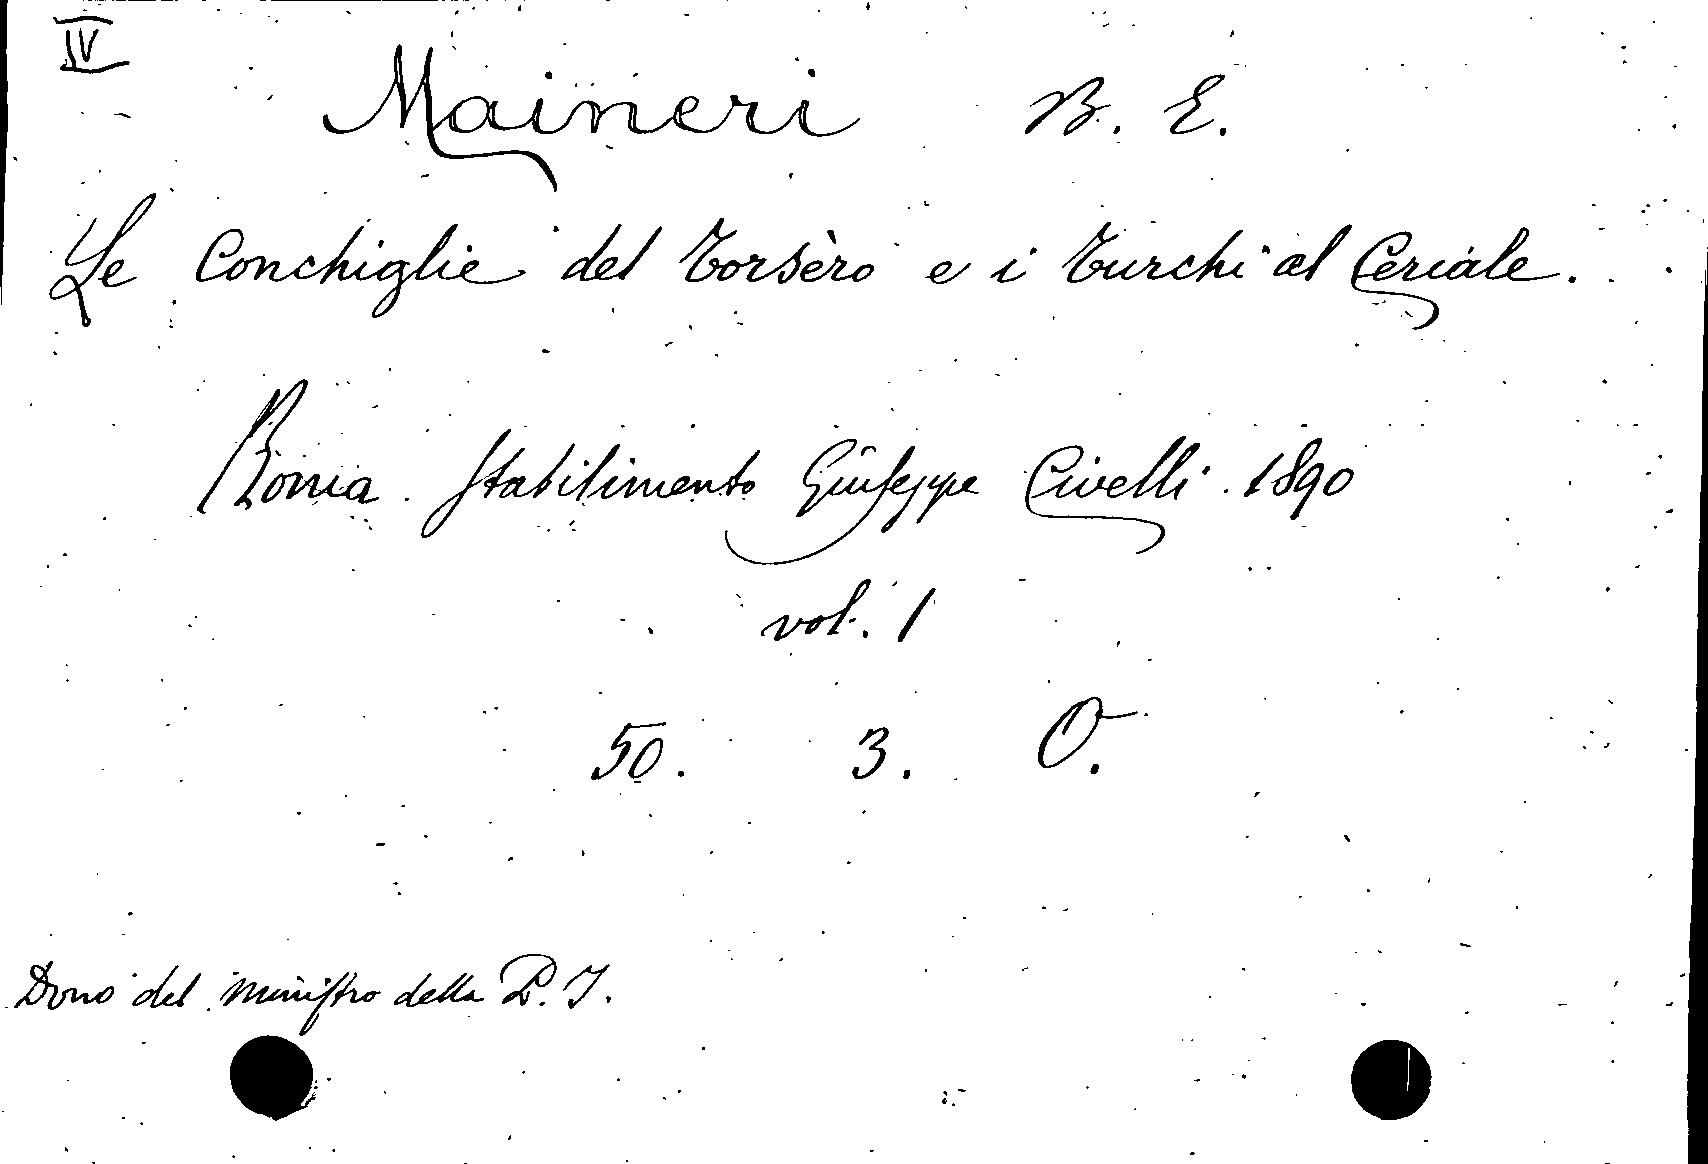 IV
Maineri B. E.
Le Conchiglie del Torsèro e i Turchi al Ceriale.
Roma. Stabilimento Giuseppe Civelli. 1890
vol. 1
50. 3. O.
Dono del ministro della P. I.